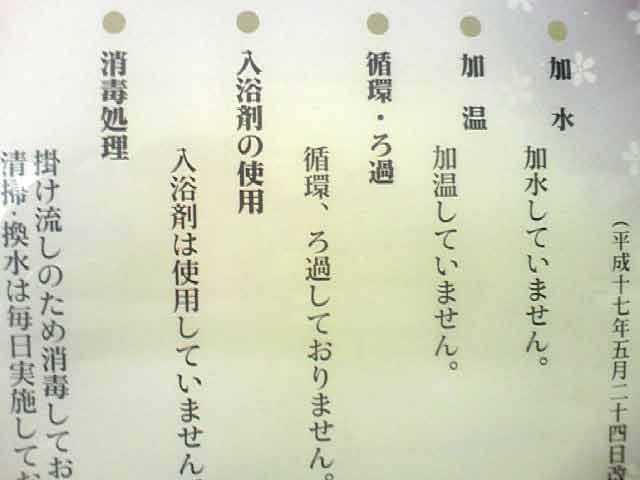 （平成十七年五月二十四日改
加水
加水していません。
加温
加温していません。
循環・ろ過
循環、ろ過しておりません。
入浴剤の使用
入浴剤は使用していません
消毒処理
掛け流しのため消毒してお
清掃・換水は毎日実施してお